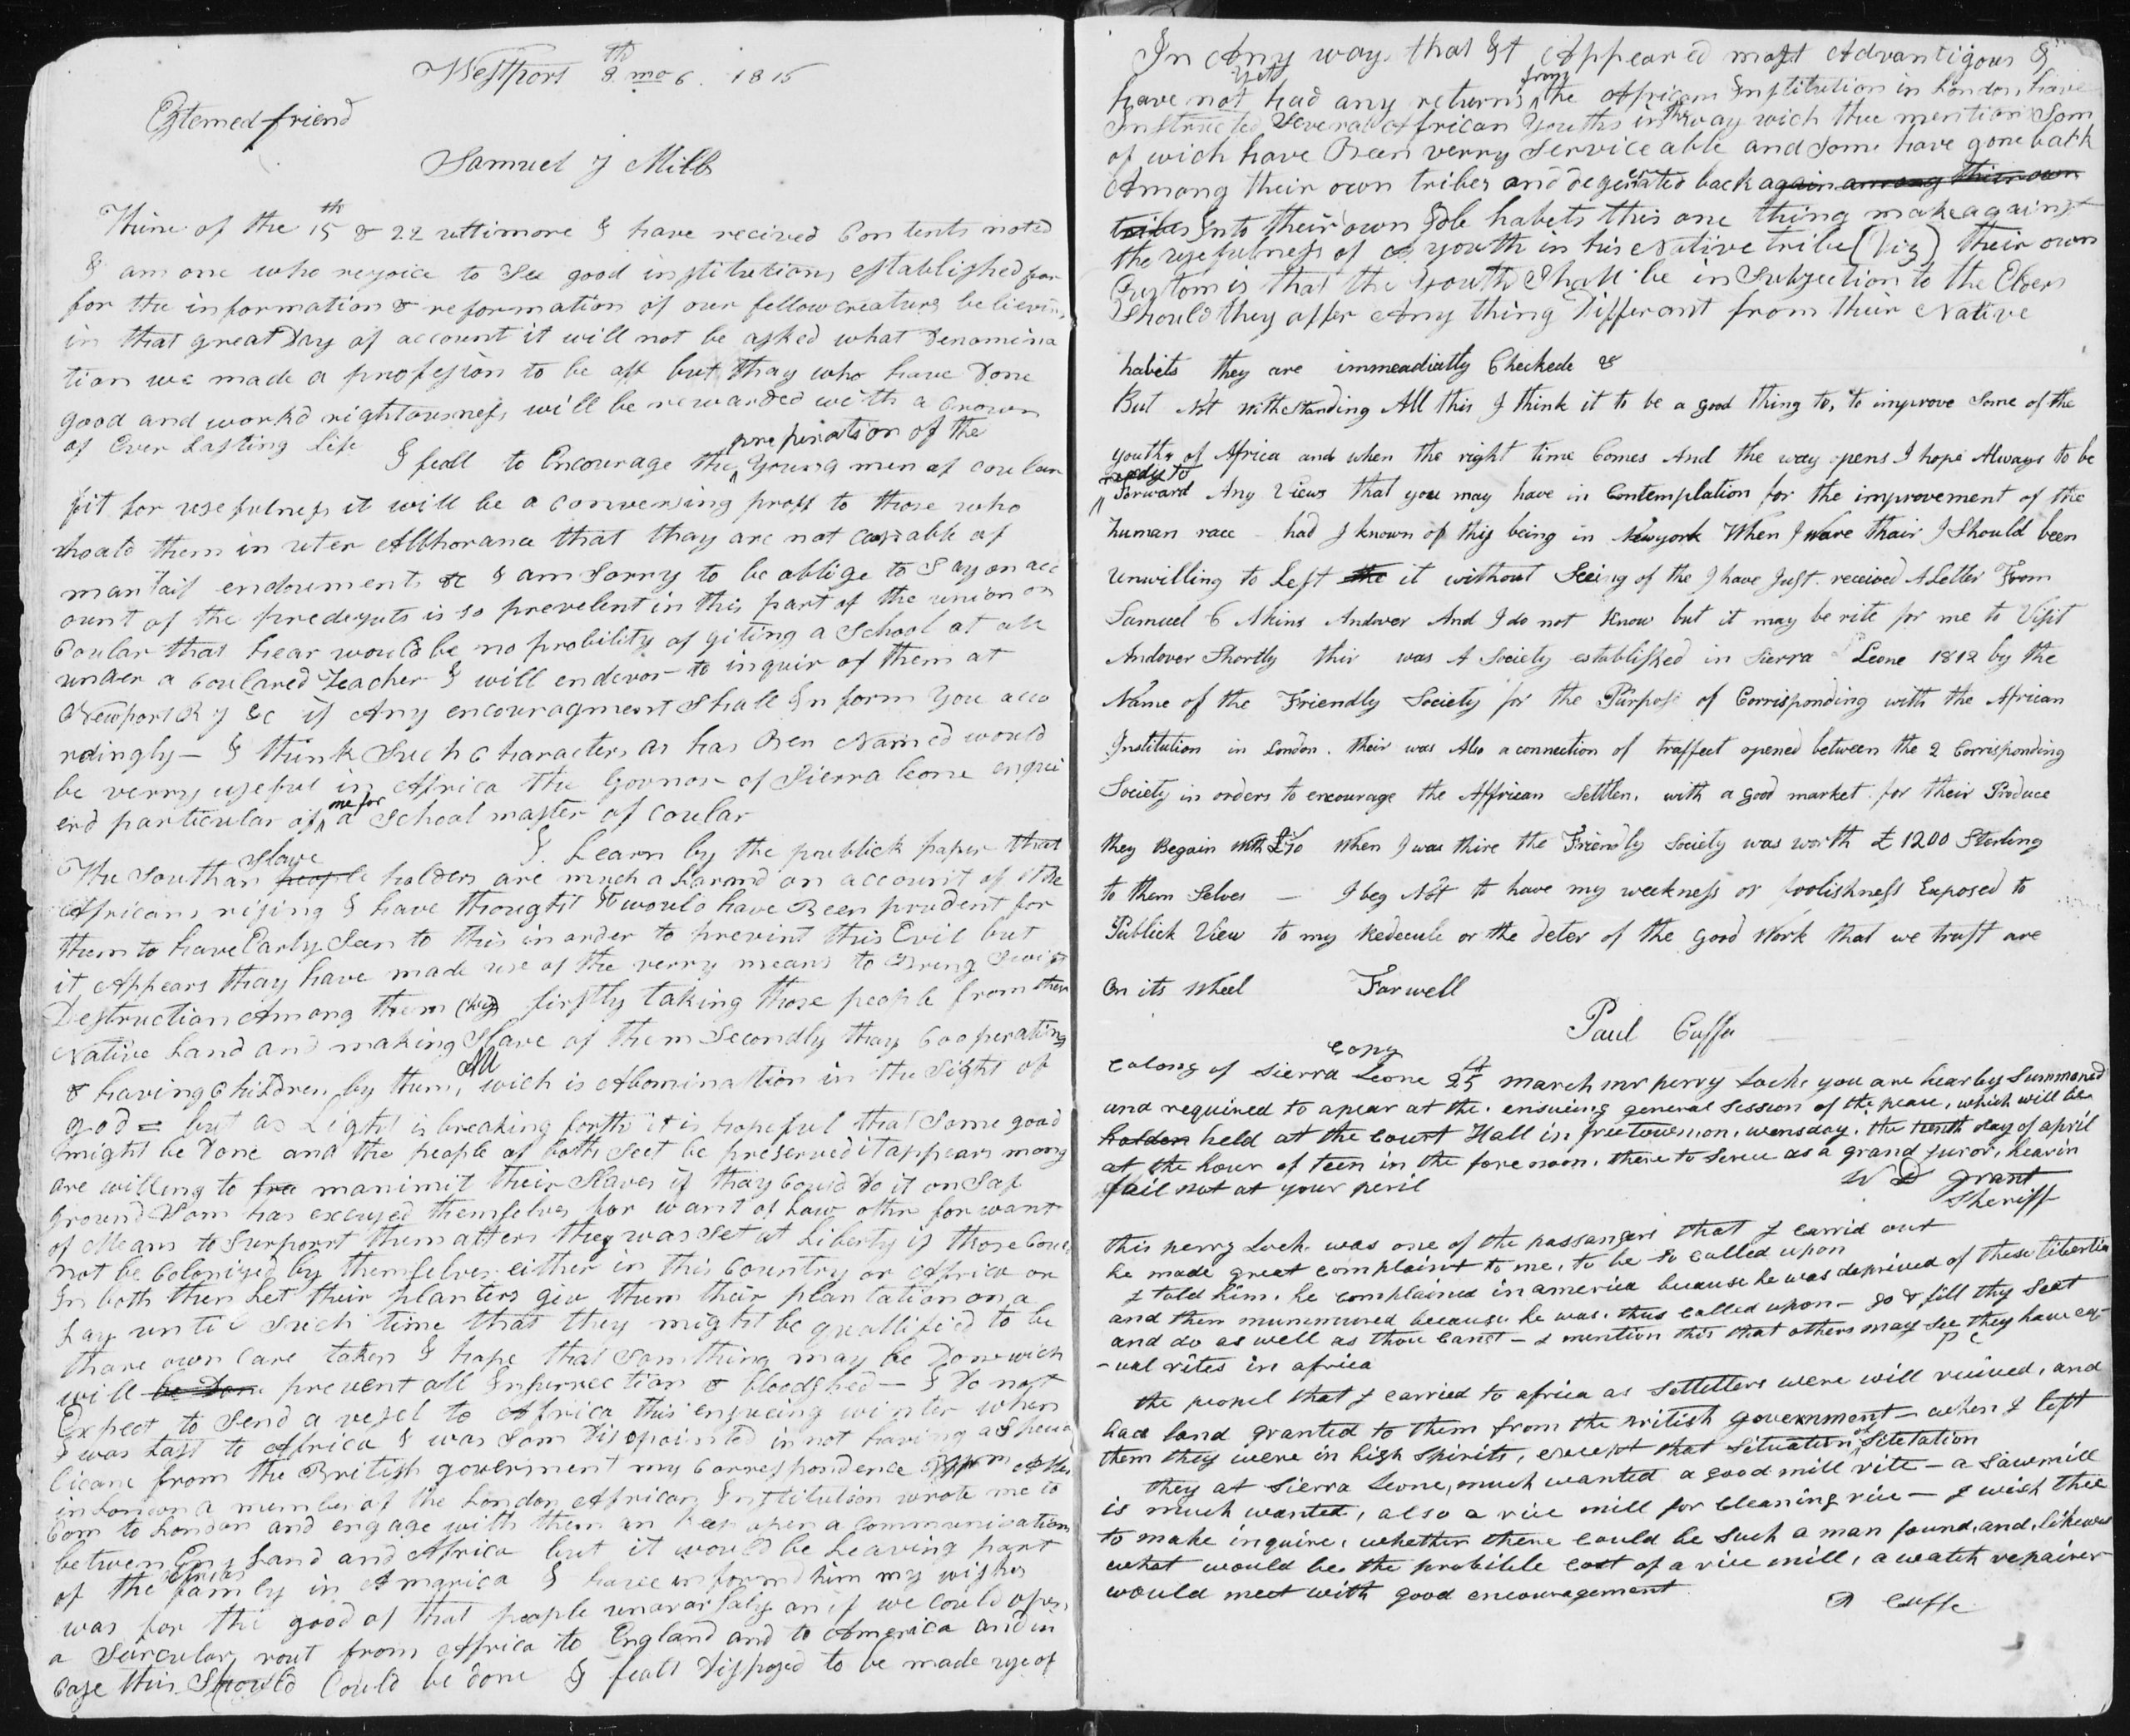 Westport 8th mo 6. 1816
Estemed friend
Samuel J Mills
Thine of the 15th & 22 ultimore I have recived Contents noted
I am one who rejoice to See good institutions established for
for the information & reformation of our fellow creatures believin
in that great Day of account it will not be asked what Denomina
tion we made a profesion to be off but thay who have Done
good and workd rightousness will be rewarded with a Crown
of Ever Lasting Life I feall to Encourage the preperation of the Young men of coular
fit for usefulness it will be a convensing proff to those who
should them in uter Abhorance that thay are not capable of
mantail endouments &c I am Sorry to be oblige to Say on acc
ount of the predeguts is so prevelent in this part of the union on
Coular that hear would be no probility of giting a School at all
under a coulared Teacher I will endevor to inquir of them at
Newport R I &c if Any encouragment Shall Inform You acco
rdingly — I think Such Characters as has Ben Named would
be verry useful in Africa the Govnor of Sierra leone enquir
erd particular of one for a School master of Coular
I. Learn by the publick paper that
The Southan people slave holders are much alarmd on account of the
Africans rising I have thought it would have Been prudent for
them to have Early Seen to this in order to prevint this Evil but
it Appears thay have made use of the verry means to Bring Swift
Destruction Among them (viz) firstly taking those people from their
Native Land and making Slave of them Secondly thay Cooperating
& having Children by them, All wich is Abomination in the Sight of
god = but as Light is breaking forth it is hopeful that Some good
might be Done and the people of both Sect be preserved it appears mony
are willing to free manimit their Slaves if thay Could Do it on Saf
ground Som has excused themselves for want of Law othr for want
of Means to Surpport them after they was Set at Liberty if those Could
not be Colonized by themselves either in this Country or Africa or
In both then Let their planters giv them their plantation on a
Lay until Such time that they might be quallified to be
thare own Care taken I hope that Somthing may be Done wich
will be Done prevent all Insurrection & bloodshed — I Do not
Expect to Send a vesel to Africa this ensueing winter when
I was Last to Africa I was Som Disopointed in not having a
licane from the British goverment my Correspondence
in London a member of the London African Institution wrote me to
Com to London and engage with them an keep open a communication
between England and Africa but it would be Leaving part
of the African family in Amarica I have informd him my wishes
was for the good of that people unavarsaly an if we could open
a Surcular rout from Africa to England and to America and in
Case this Should Could be done I feall Disposed to be made use of
In Any way that It Appeared most Advantigous I
have not Yett had any returns from the African Institution in London have
Instructed Several African Youths in the way wich thee mention Som
of wich have Been verry Serviceable and Some have gone back
Among their own tribes and degenerated back again among their own
tribes Into their own Idle habets this one thing make against
the usefulness of a youth in his Native tribe (Viz) their own
Custom is that the Youth Shall be in Subjection to the Elders
Should they offer Any thing Differant from their Native
habits they are immeadiatly Checkede &
But Not withstanding All this I think it to be a good thing to, to improve Some of the
youths of Africa and when the right time Comes And the way opens I hope Always to be
redy to Forward Any Views that you may have in Contemplation for the improvement of the
human race — had I known of thy being in Newyork When I ware thair I Should been
unwilling to Left the it without Seeing of the I have Just received A Letter From
Samuel C Akins Andover And I do not Know but it may be rite for me to Visit
Andover Shortly thir was A Society established in Sierra Leone 1812 by the
Name of the Friendly Society for the Purpose of Corrisponding with the African
Institution in London. their was Also a connection of traffect opened between the 2 Corrisponding
Society in orders to encourage the Affrican Settlers. with a good market for their Produce
they Begain With £70 When I was thire the Friendly Society was worth £1200 Sterling
to them Selves — I beg Not to have my weekness or foolishness Exposed to
Publick View to my Redecule or the deter of the good Work that we trust are
On its Wheel Farwell
Paul Cuffe
Copy
Colony of Sierra Leone 25th march mr perry Lock, you are hearby Summoned
and required to apear at the. ensueing general Session of the peace, which will be
holden held at the Court Hall in freetown on, wensday, the tenth day of april
at the hour of teen in the forenoon, there to Serve as a grand juror, hearin
fail not at your peril
W D grant
Sheriff
this perry Lock was one of the passangers that I carrid out
he made great complaint to me, to be So called upon
I told him. he complained in america because he was deprived of these libertia
and then murmured because he was. thus called upon — go & fill thy Seat
and do as well as thou Canst — I mention this that others may See they have eq-
-ual rites in africa
the peopel that I carried to africa as Settellers were will reeived, and
had land granted to them from the british government — when I left
them they were in high Spirits, except that Situation of Sitetation
they at Sierra Leone, much wanted a good mill rite — a Sawmill
is much wanted, also a rice mill for Cleaning rice — I wish thee
to make inquire, whether there could be Such a man found, and, likewis
what would be the probible Cost of a rice mill, a watch repairer
would meet with good encouragement
P Cuffe